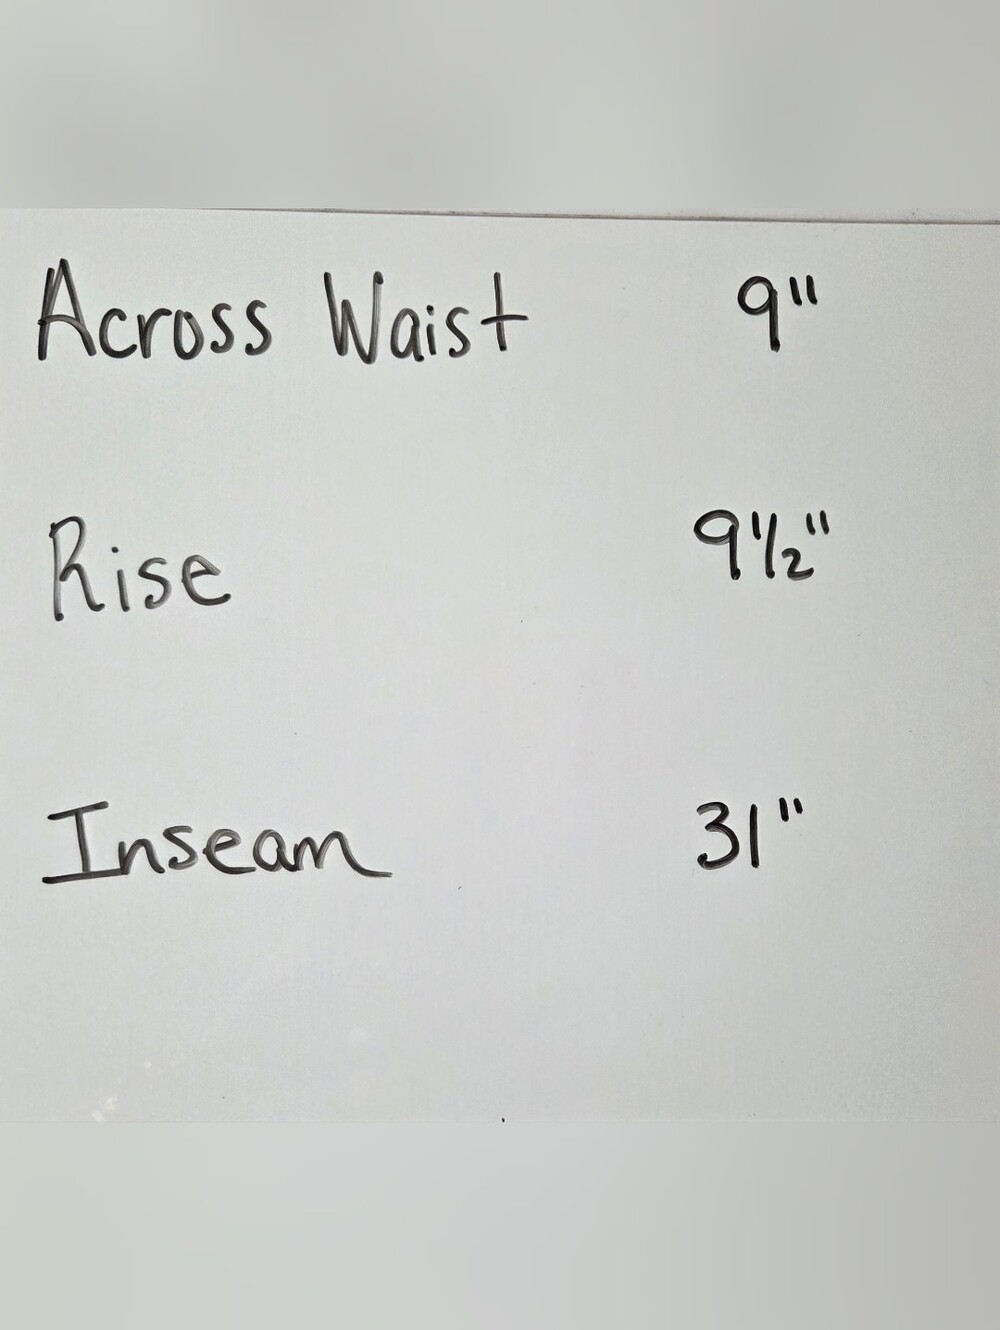 Across Waist 9"
Rise 9 1/2"
Inseam 31"